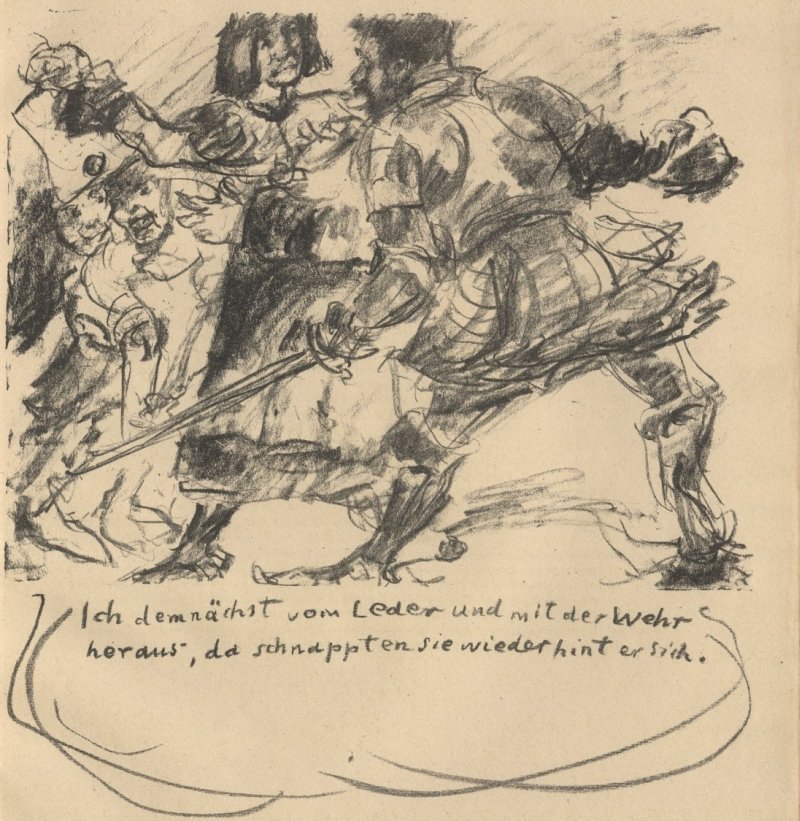 Ich demnächst vom Leder und mit der Wehr
heraus, da schnappten sie wieder hinter sich.